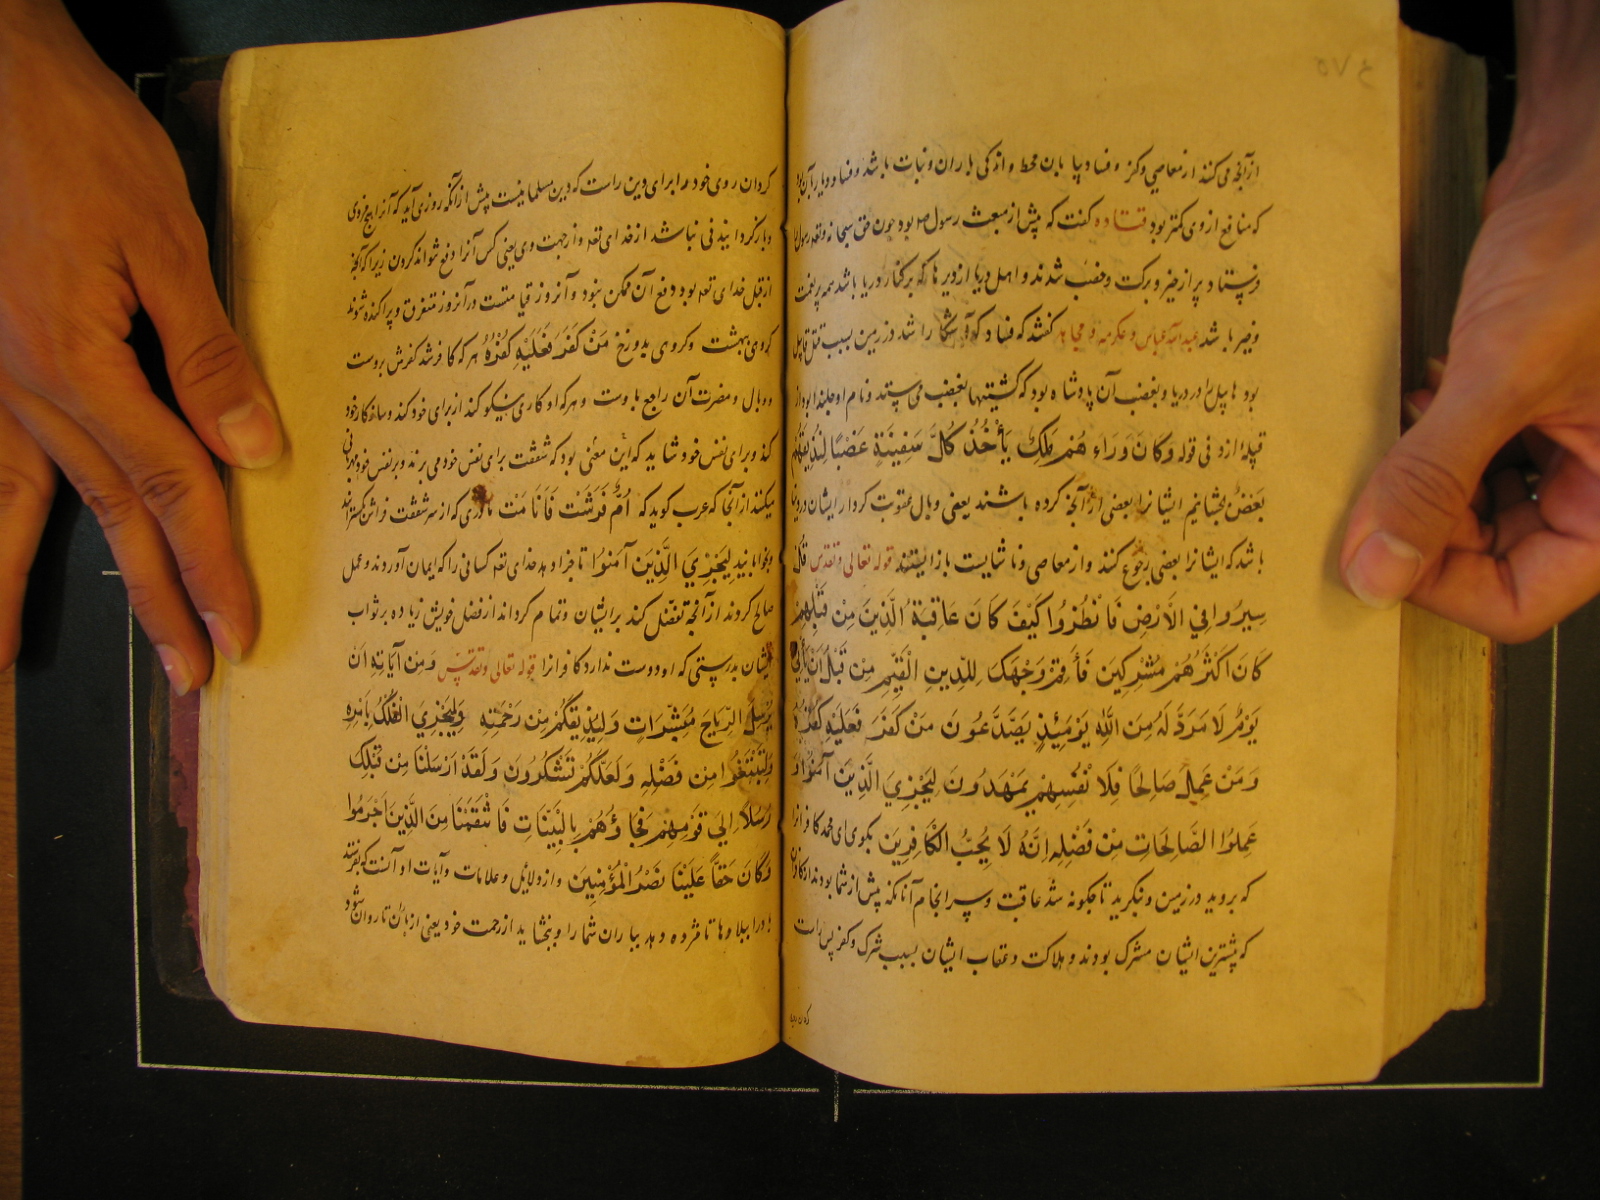 از آنچه می کنند از معاصی و کفر و فساد بیابان قحط و اندکی باران و نبات باشد و فساد دریا را
که منافع از وی کمتر بود قتاده گفت که پیش از مبعث رسول ص بود چون حق سبحانه و تعه رسول را
فرستاد پر از خیر و برکت و خصب شدند و اهل دریا از دیرها که بر کنار دریا باشد همه پر نعمت
و خیر باشد عبدالله عباس و عکرمه و مجاهد گفتند که فساد که آشکارا شد در زمین بسبب قتل قابیل
بود هابیل را در دریا و بغضب آن پادشاه بود که کشتیها بغضب می ستد و نام او جلندا بود از
قبیلۀ ازد فی قوله وَكَانَ وَرَاءَ هُمْ مَلِكٌ يَأْخُذُ كُلَّ سَفِينَةٍ غَصْبًا لِيُذِيقَهُمْ
بَعْضَ بچشانیم ایشانرا بعضی از آنچه کرده باشند یعنی وبال عقوبت کردار ایشان در دنیا
باشد که ایشانرا بعضی رجوع کنند و از معاصی و ناشایست باز ایستند قوله تعالی و تقدس قُلْ
سِيرُوا فِي الْأَرْضِ فَانْظُرُوا كَيْفَ كَانَ عَاقِبَةُ الَّذِينَ مِنْ قَبْلِهِمْ
كَانَ أَكْثَرُهُمْ مُشْرِكِينَ فَأَقِمْ وَجْهَكَ لِلدِّينِ الْقَيِّمِ مِنْ قَبْلِ أَنْ يَأْتِيَ
يَوْمٌ لَا مَرَدَّ لَهُ مِنَ اللَّهِ يَوْمَئِذٍ يَصَّدَّعُونَ مَنْ كَفَرَ فَعَلَيْهِ كُفْرُهُ
وَمَنْ عَمِلَ صَالِحًا فَلِأَنْفُسِهِمْ يَمْهَدُونَ لِيَجْزِيَ الَّذِينَ آمَنُوا وَ
عَمِلُوا الصَّالِحَاتِ مِنْ فَضْلِهِ إِنَّهُ لَا يُحِبُّ الْكَافِرِينَ بگوی ای محمد کافرانرا
که بروید در زمین و بنگرید تا چگونه شد عاقبت و سرانجام آنانکه پیش از شما بودند از کافران
که بیشترین ایشان مشرک بودند و هلاکت و عقاب ایشان بسبب شرک و کفر پس راست
گردان روی خود را برای دین راست که دین مسلمانیست پیش از آنکه روزی آید که آنرا هیچ
و بازگردانیدنی نباشد از خدای تعه و از جهت وی یعنی کس آنرا دفع نتواند کردن زیرا که آنچه
از قبل خدای تعه بود دفع آن ممکن نبود و آنروز قیامتست در آنروز متفرق و پراکنده شوند
گروی بهشت و گروی بدوزخ مَنْ كَفَرَ فَعَلَيْهِ كُفْرُهُ هر که کافر شد کفرش بروست
و وبال و مضرت آن راجع باوست و هر که او کاری نیکو کند از برای خود کند و ساخته کار خود
کند و برای نفس خود شاید که این معنی بود که شفقت برای نفس خود می برند و بر نفس خود مهربانی
میکنند از آنجا که عرب گوید که اُمٌّ فَرَشَتْ فَأَنَامَتْ مادری که از سر شفقت فراش بگستراند
و بخوابانید لِيَجْزِيَ الَّذِينَ آمَنُوا تا جزا دهد خدای تعه کسانی را که ایمان آوردند و عمل
صالح کردند از آنچه تفضل کند بر ایشان و تمام گرداند از فضل خویش زیاده بر ثواب
ایشان بدرستی که او دوست ندارد کافرانرا قوله تعالی و تقدس وَمِنْ آيَاتِهِ أَنْ
يُرْسِلَ الرِّيَاحَ مُبَشِّرَاتٍ وَلِيُذِيقَكُمْ مِنْ رَحْمَتِهِ وَلِيَجْزِيَ الْفُلْكُ بِأَمْرِهِ
وَلِتَبْتَغُوا مِنْ فَضْلِهِ وَلَعَلَّكُمْ تَشْكُرُونَ وَلَقَدْ أَرْسَلْنَا مِنْ قَبْلِكَ
رُسُلًا إِلَى قَوْمِهِمْ فَجَاؤُهُمْ بِالْبَيِّنَاتِ فَانْتَقَمْنَا مِنَ الَّذِينَ أَجْرَمُوا
وَكَانَ حَقًّا عَلَيْنَا نَصْرُ الْمُؤْمِنِينَ و از دلایل و علامات و آیات او آنست که بفرستد
بادرا ببلاد ها تا مژده دهد بباران شما را و بچشاید از رحمت خود یعنی از باران تا روان شود